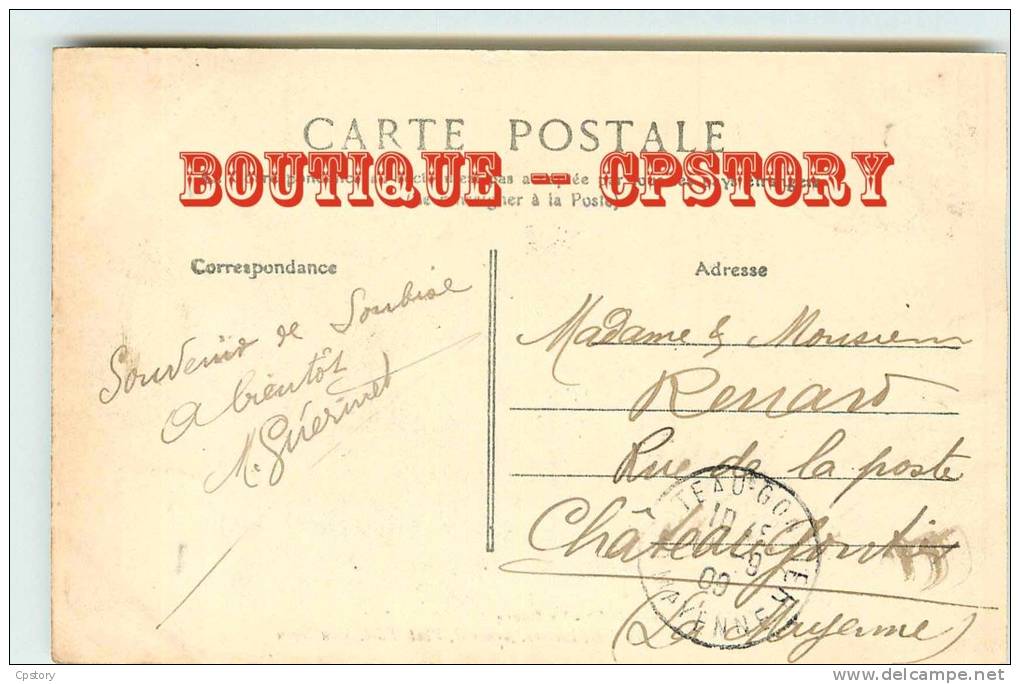 CARTE POSTALE
BOUTIQUE -- CPSTORY
à la Poste
Correspondance
Adresse
Souvenir de Soubise
a bientôt
M. Guérinet
Madame & Monsieur
Renard
Rue de la poste
Châteaugontier
(La Mayenne)
TEAU-GONTIER
09
MAYENNE
Cpstory
delcampe.net